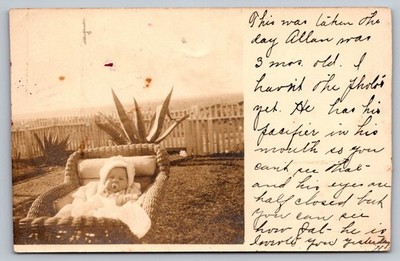 This was taken the
day Allan was
3 mos. old. I
havn't the photo's
yet. He has his
pasifier in his
mouth so you
can't see that
and his eyes are
half closed but
you can see
how fat he is
I wrote you yesterday